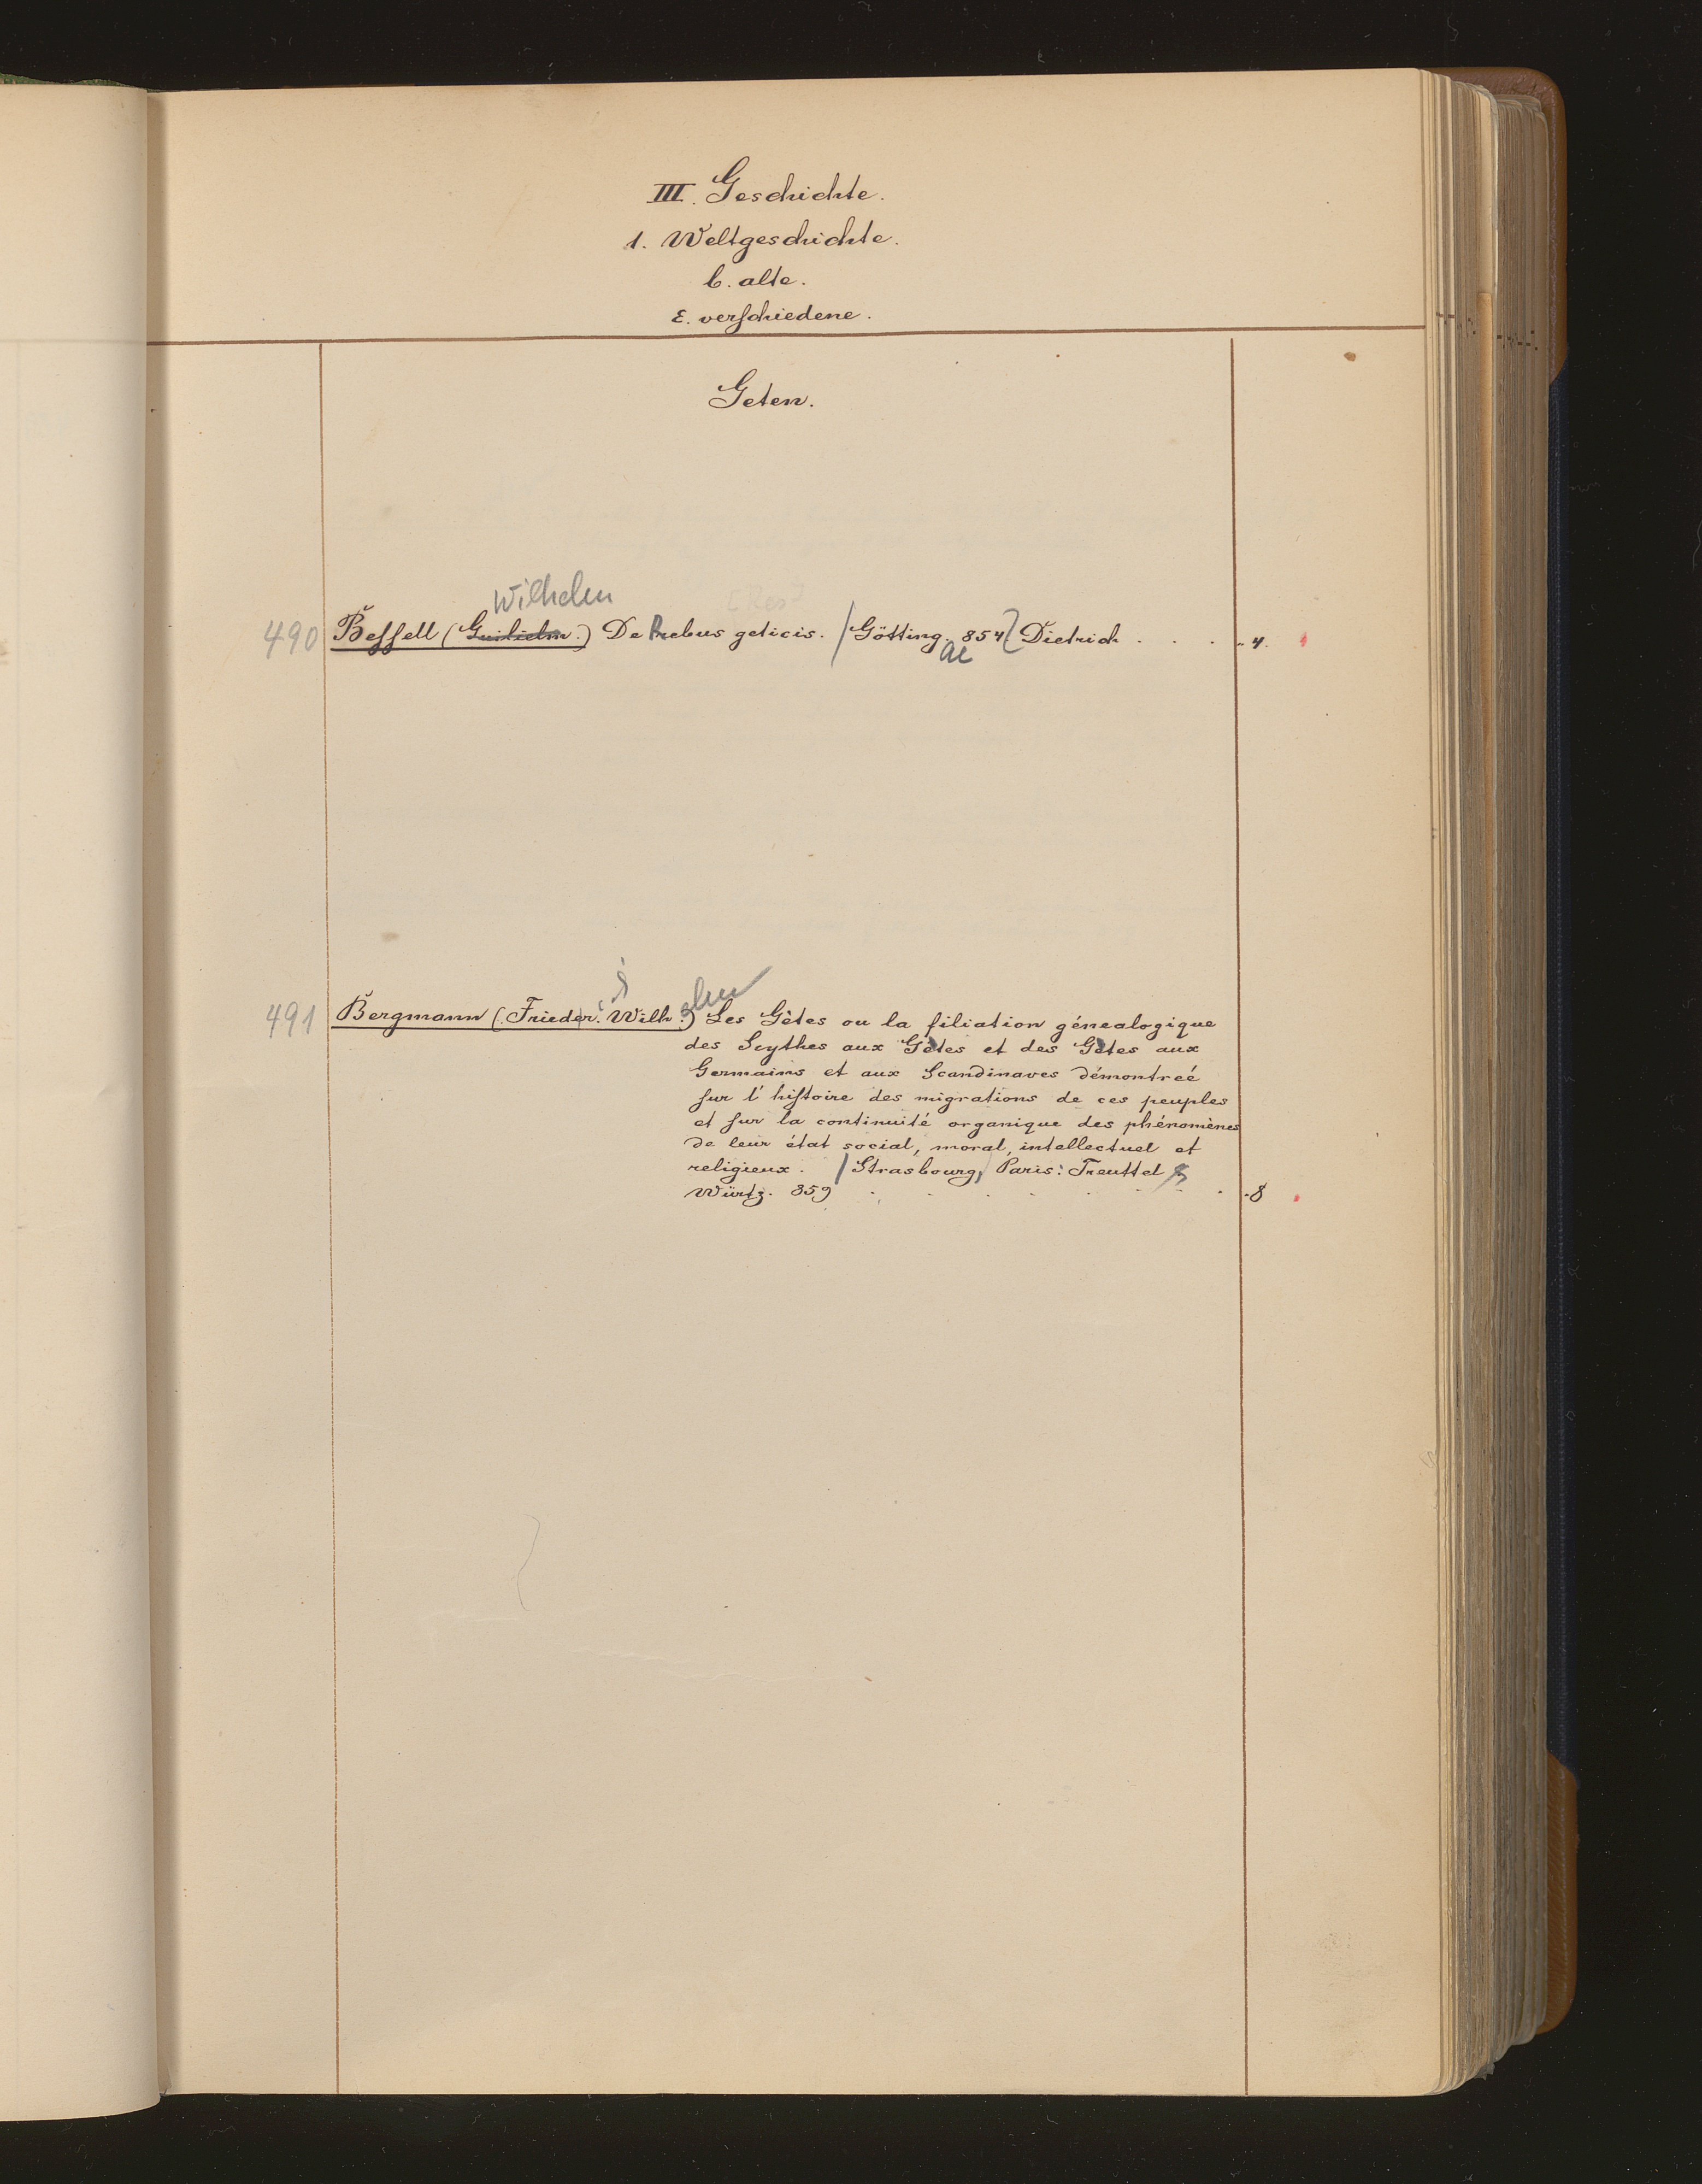 III. Geschichte.
1. Weltgeschichte.
b. alte.
ε. verschiedene.
Geten.
Wilhelm [Res]
490 Beſſell (Guilielm.) De Rebus geticis. / Götting. 854 Dietrich . . . . 4.
ae
491 Bergmann (Frieder. Wilhelm) Les Gètes ou la filiation génealogique
des Scythes aux Gètes et des Gètes aux
Germains et aux Scandinaves démontreé
ſur l'hiſtoire des migrations de ces peuples
et ſur la continuité organique des phénomènes
de leur état social, moral, intellectuel et
religieux. / Strasbourg, Paris: Treuttel &
Würtz. 859 . . . . . . . . 8